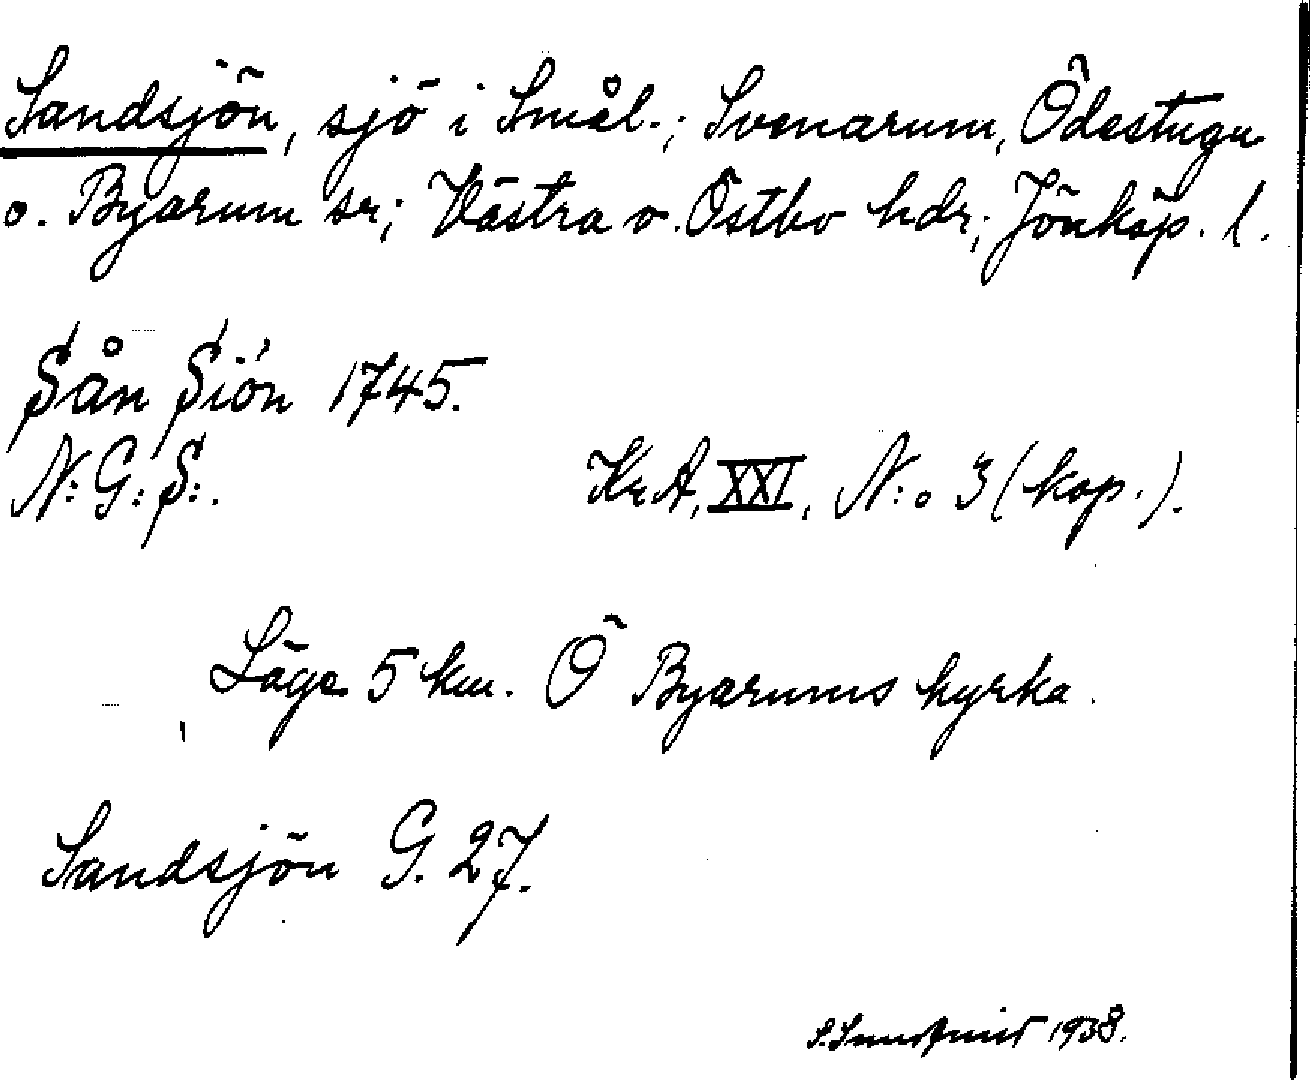 Sandsjön, sjö i Smål.; Svenarum, Ödestugu
o. Byarum snr; Västra o. Östbo hdr; Jönköp. l.
Sån Siön 1745.
N:G:S:.
KrA, XXI, N:o 3 (kop.).
Läge 5 km. Ö Byarums kyrka.
Sandsjön G. 27.
1938.